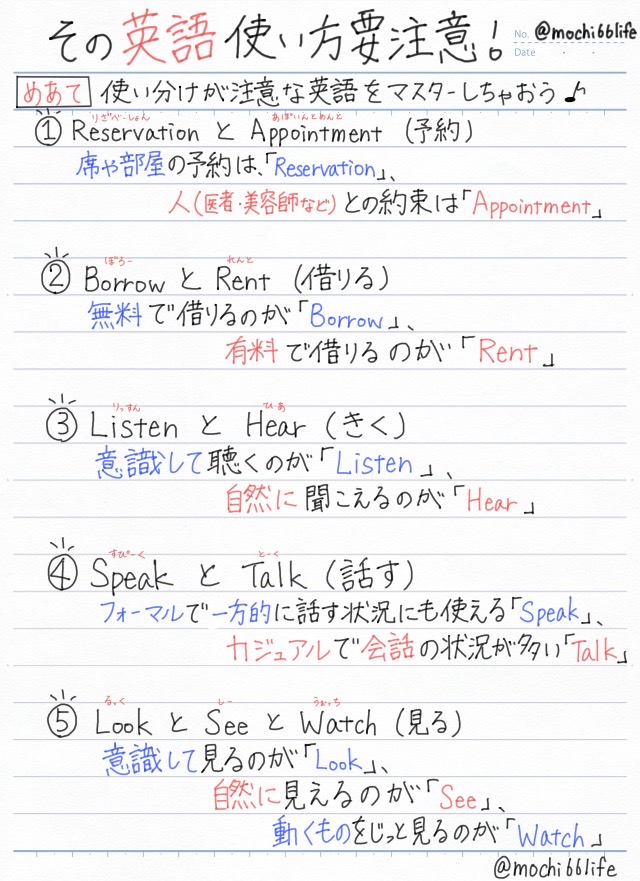 その英語使い方要注意!
No. @mochi66life
Date
めあて 使い分けが注意な英語をマスターしちゃおう♪
りざべーしょん あぽいんとめんと
① Reservation と Appointment (予約)
席や部屋の予約は、「Reservation」、
人(医者・美容師など)との約束は「Appointment」
ぼろー れんと
② Borrow と Rent (借りる)
無料で借りるのが「Borrow」、
有料で借りるのが「Rent」
りっすん ひあ
③ Listen と Hear (きく)
意識して聴くのが「Listen」、
自然に聞こえるのが「Hear」
すぴーく とーく
④ Speak と Talk (話す)
フォーマルで一方的に話す状況にも使える「Speak」、
カジュアルで会話の状況が多い「Talk」
るっく しー うぉっち
⑤ Look と See と Watch (見る)
意識して見るのが「Look」、
自然に見えるのが「See」、
動くものをじっと見るのが「Watch」
@mochi66life